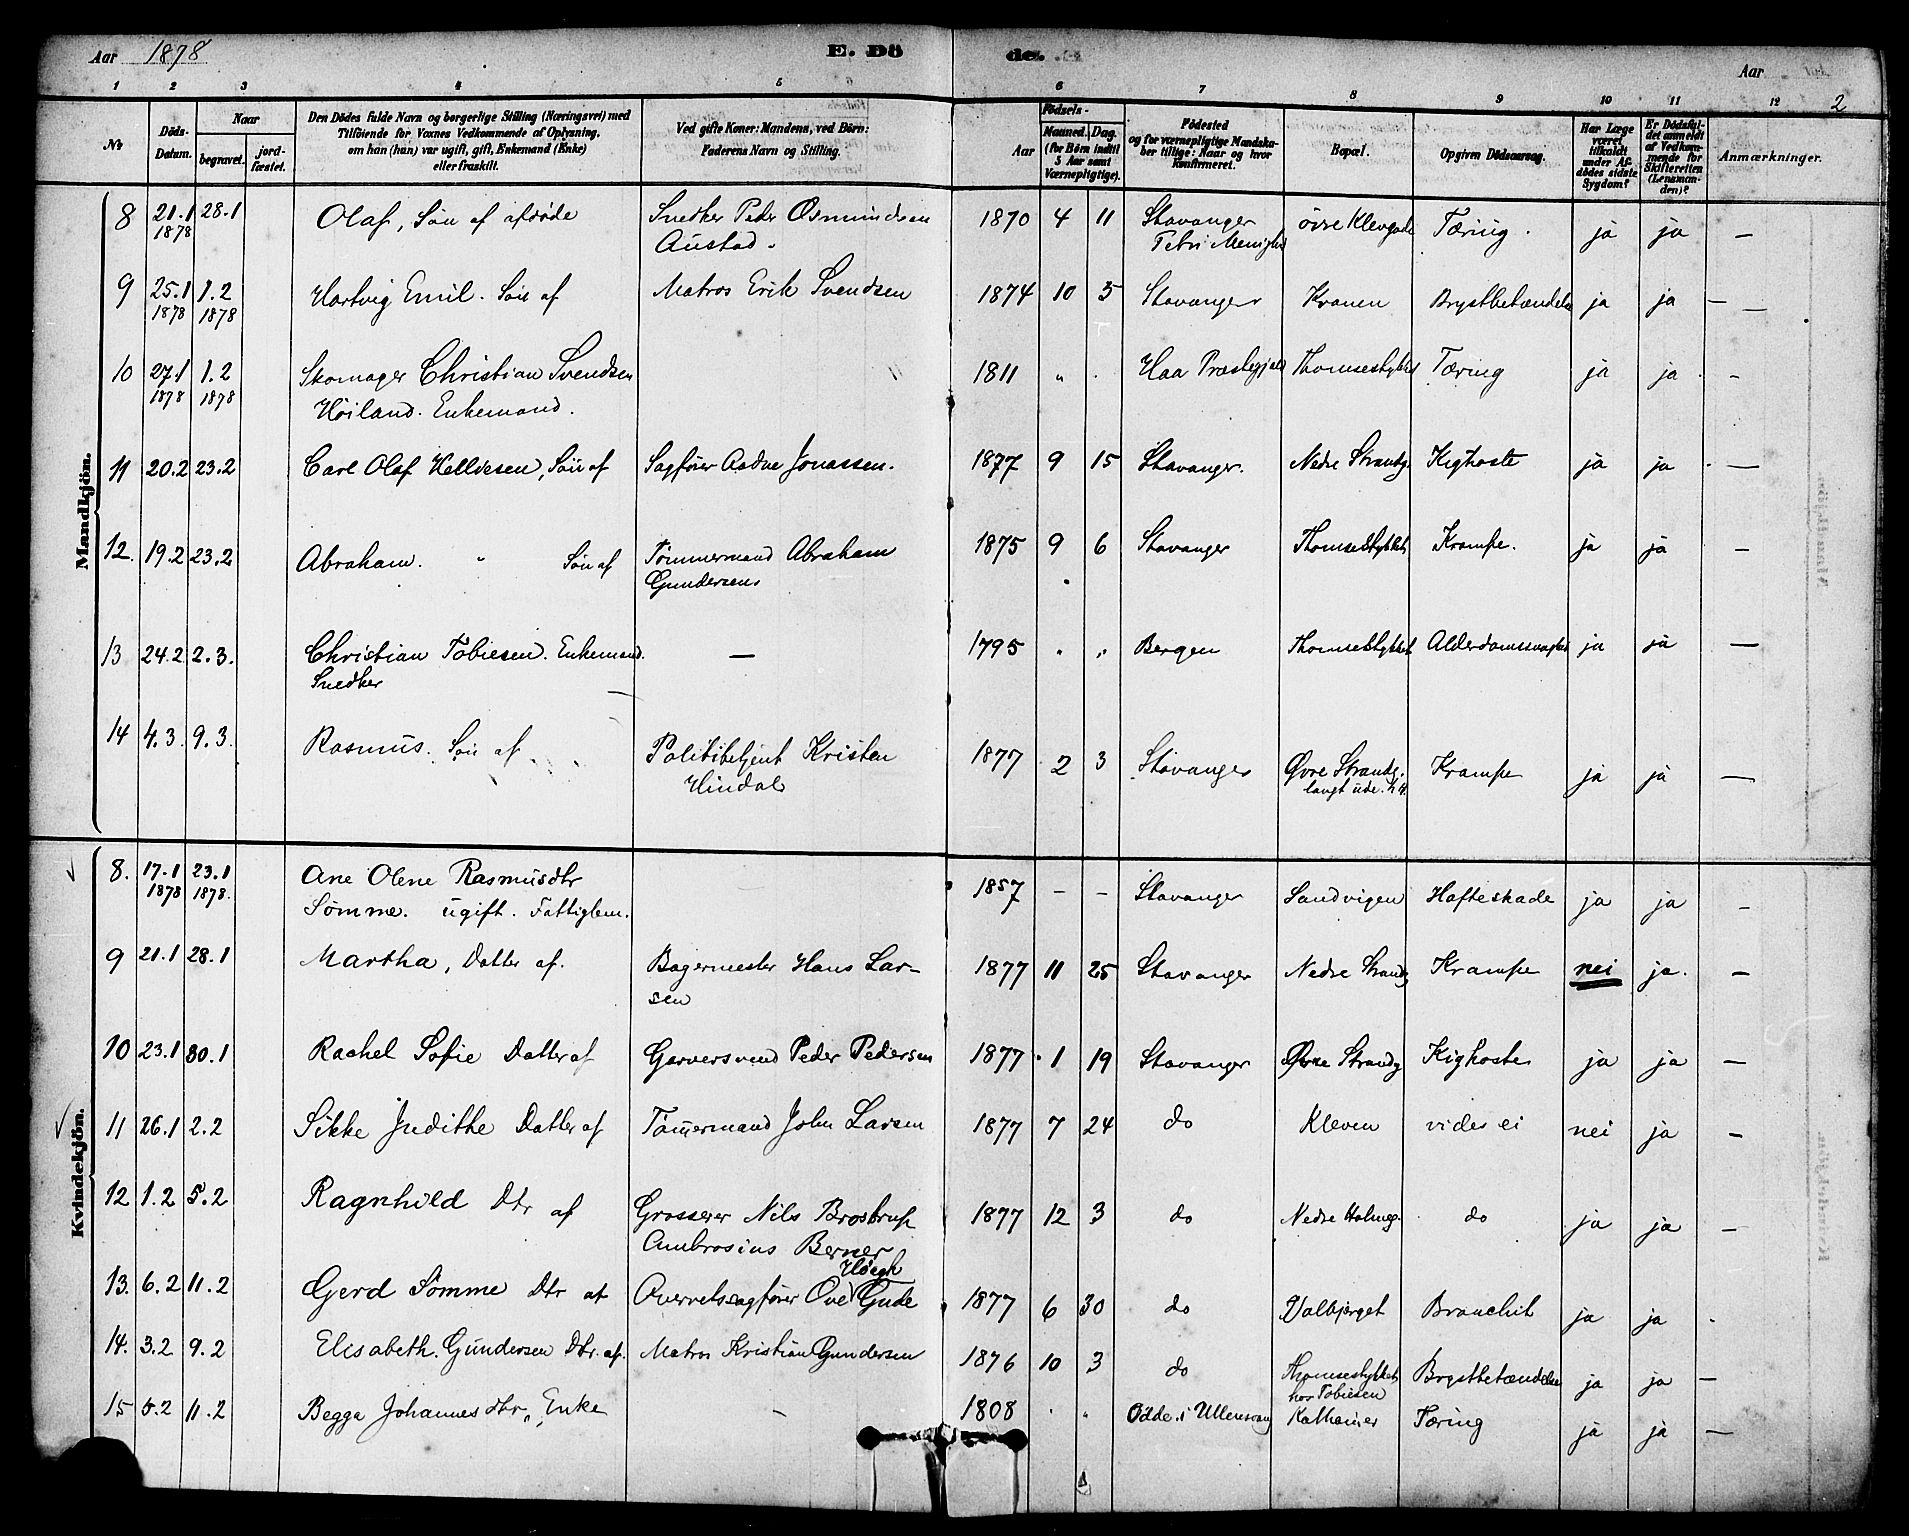 Aar 1878 E. Dö de. Aar
1 2 3 4 5 6 7 8 9 10 11 12 2
№ Döds-Datum. Naar begravet. jordfæstet. Den Dödes fulde Navn og borgerlige Stilling (Næringsvei) med Tilföiende for Voxnes Vedkommende af Oplysning, om han (hun) var ugift, gift, Enkemand (Enke) eller fraskilt. Ved gifte Koner: Mandens, ved Börn: Faderens Navn og Stilling. Födsels- Aar Maaned. Dag. (for Börn indtil 5 Aar samt Værnepligtige). Födested og for værnepligtige Mandskaber tillige: Naar og hvor konfirmeret. Bopæl. Opgiven Dödsaarsag. Har Læge været tilkaldt under Afdödes sidste Sygdom? Er Dödsfaldet anmeldt af Vedkommende for Skifteretten (Lensmanden)? Anmærkninger.
Mandkjön.
8 21.1 28.1 Olaf, Søn af afdøde Snedker Peder Osmundsen 1870 4 11 Stavanger øvre Klevgade Tæring. ja ja —
1878 Austad. Petri Menighed
9 25.1 1.2 Hartvig Emil. Søn af Matros Erik Svendsen 1874 10 5 Stavanger Kranen Brystbetændelse ja ja —
1878 1878
10 27.1 1.2 Skomager Christian Svendsen 1811 „ . Haa Præstegjeld Thomsestykket Tæring ja ja. -
1878 1878 Høiland. Enkemand.
11 20.2 23.2 Carl Olaf Helliesen, Søn af Sagfører Aadne Jonassen. 1877 9 15 Stavanger. Nedre Strandg. Kighoste ja ja —
12. 19.2 23.2 Abraham. „ Søn af Tømmermand Abraham 1875 9 6 Stavanger Thomsestykket Krampe. ja ja —
Gundersens
13 24.2 2.3. Christian Tobiesen. Enkemand. — 1795 „ „ Bergen Thomsestykket Alderdomssvaghed ja ja —
Snedker
14 4.3. 9.3. Rasmus. Søn af Politibetjent Kristen 1877 2 3 Stavanger Øvre Strandg. Krampe ja ja —
Hindal langt ude.
Kvindekjön.
8. 17.1 23.1 Ane Olene Rasmusdtr 1857 — — Stavanger Sandvigen Hofteskade ja ja —
1878 1878. Sømme. ugift. Fattiglem.
9 21.1 28.1 Martha, Datter af. Bagermester Hans Lar- 1877 11 25 Stavanger Nedre Strandg Krampe nei ja. —
sen
10 23.1 30.1 Rachel Sofie Datter af Garversvend Peder Pedersen 1877 1 19 Stavanger Øvre Strandg Kighoste ja ja —
11 26.1 2.2 Sikke Judithe Datter af Tømermand John Larsen 1877 7 24 do Kleven vides ei nei ja —
12 1.2 5.2 Ragnhild Dtr af Grosserer Nils Brostrup 1877 12 3 do Nedre Holmeg. do ja ja —
Ambrosius Berner
13. 6.2 11.2 Gerd Sømme Dtr af Overretssagfører Ove Høegh Gude 1877 6 30 do Valbjerget Bronchit ja ja .
14. 3.2 9.2 Elisabeth. Gundersen Dtr. af. Matros Kristian Gundersen 1876 10 3 do Thomsestykket Brystbetændelse ja ja —
hos Tobiesen
15 5.2 11.2 Begga Johannesdtr., Enke - 1808 . „ Odde i Ullensvang Tæring ja ja —